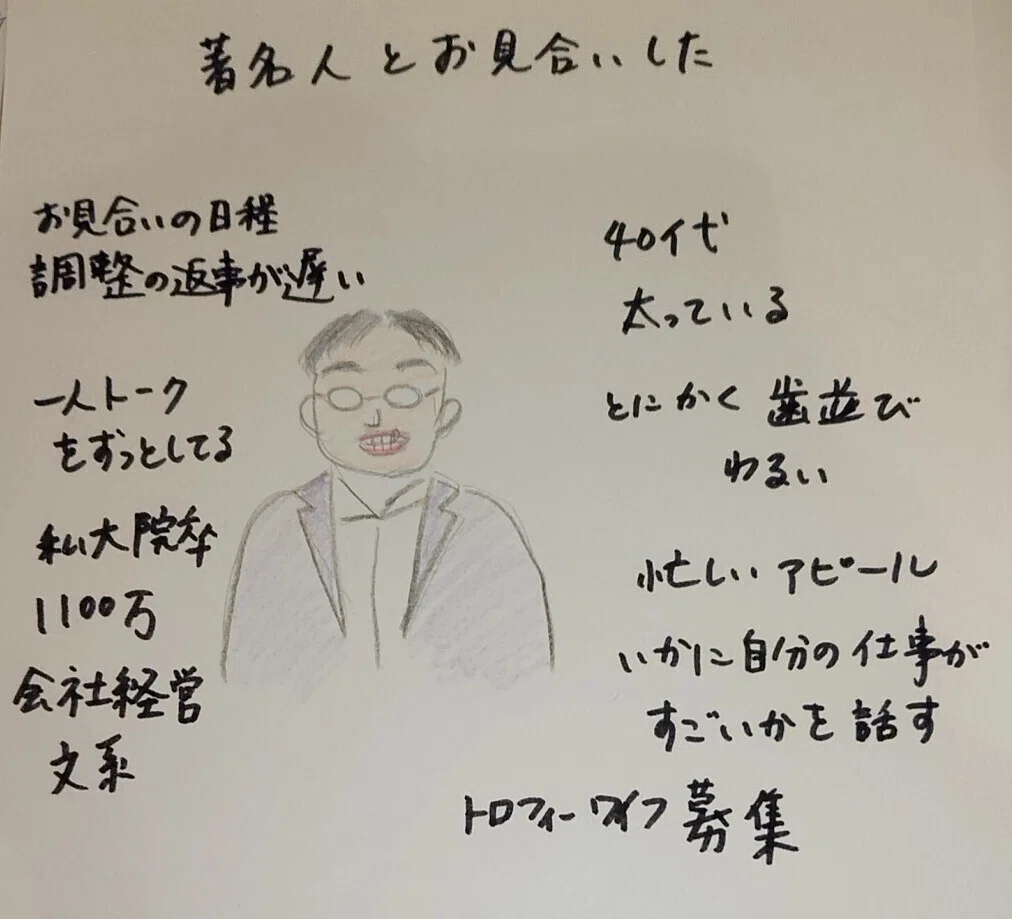 著名人とお見合いした
お見合いの日程
調整の返事が遅い
一人トーク
をずっとしてる
私大院卒
1100万
会社経営
文系
40代
太っている
とにかく歯並び
わるい
忙しいアピール
いかに自分の仕事が
すごいかを話す
トロフィーワイフ募集